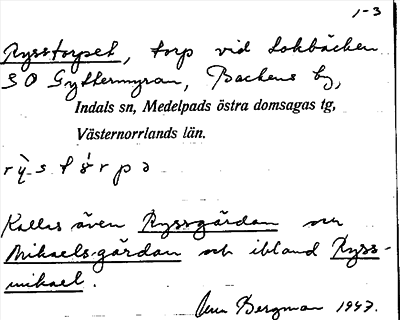 1-3
Rysstorpet, torp vid Lokbäcken
SO Gyttermyran, Backens by,
Indals sn, Medelpads östra domsagas tg,
Västernorrlands län.
Kallas även Ryssgårdan
Mikaels-gårdan och ibland Ryss-
mikael.
Bergman 1947.